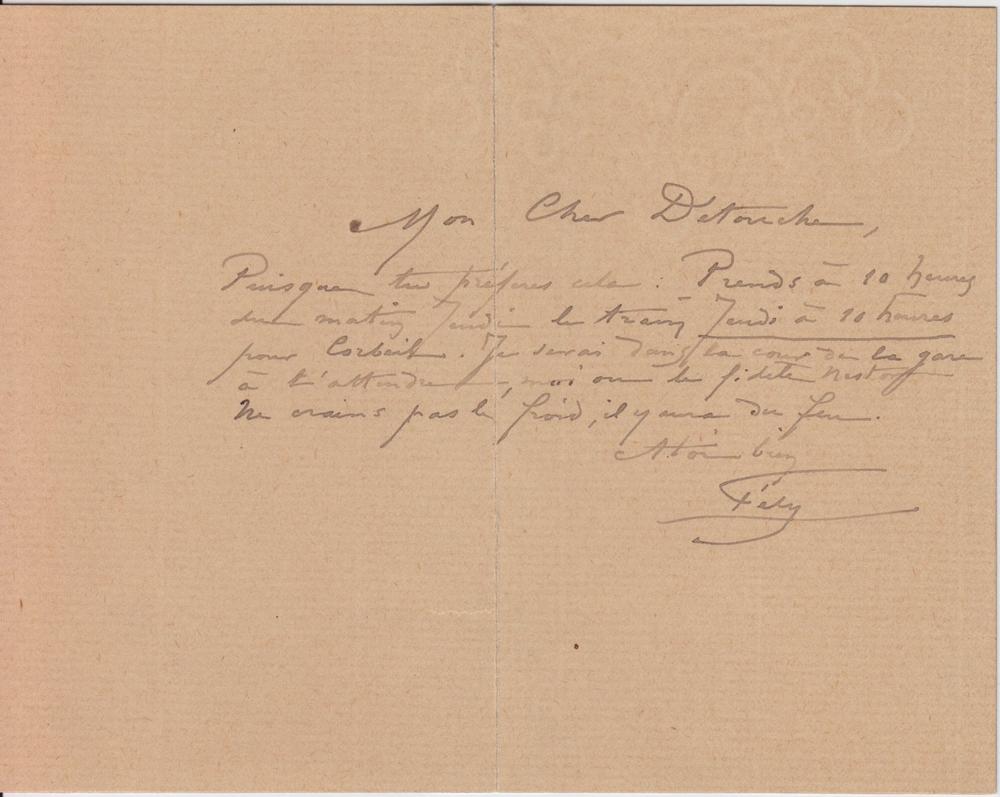 Mon Cher Détouche,
Puisque tu préfères cela : Prends à 10 heures
du matin Jeudi le train Jeudi à 10 heures
pour Corbeil. Je serai dans la cour de la gare
à t'attendre —, moi ou le fidèle Nestor
Ne crains pas le froid, il y aura du feu.
A toi bien
Fély